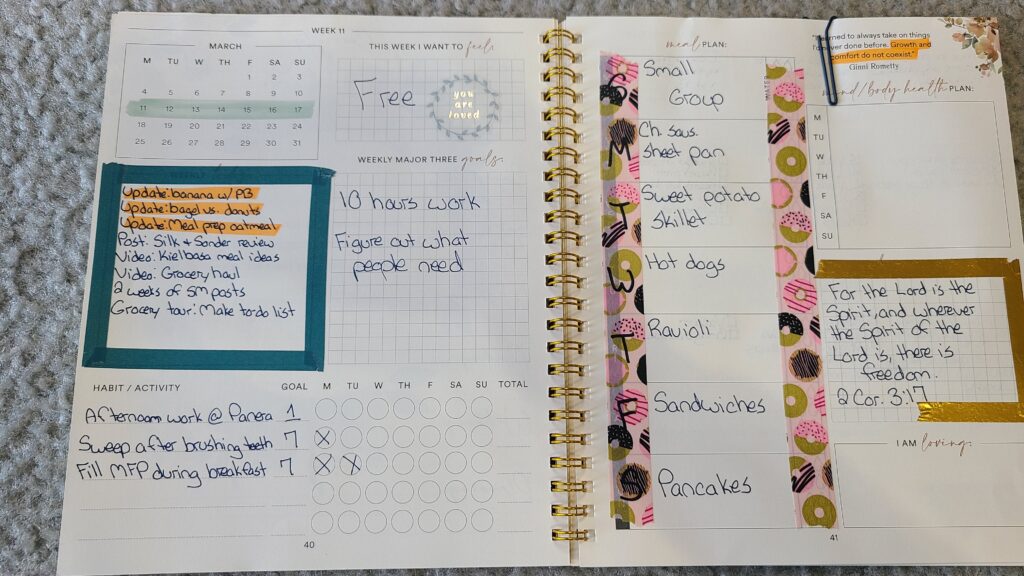 WEEK 11
MARCH
M T W T F S SU
1 2 3
4 5 6 7 8 9 10
11 12 13 14 15 16 17
18 19 20 21 22 23 24
25 26 27 28 29 30 31
Update: banana w/ PB
Update: bagel vs. donuts
Update: Meal prep oatmeal
Post: Silk + Sonder review
Video: Kielbasa meal ideas
Video: Grocery haul
2 weeks of SM posts
Grocery tour: Make to-do list
THIS WEEK I WANT TO feel:
Free
you
are
loved
WEEKLY MAJOR THREE goals:
10 hours work
Figure out what
people need
HABIT / ACTIVITY GOAL M TU W TH F SA SU TOTAL
Afternoon work @ Panera 1
Sweep after brushing teeth 7 X
Fill MFP during breakfast 7 X X
40
meal PLAN:
S Small
Group
M Ch. saus.
sheet pan
T Sweet potato
skillet
W Hot dogs
T Ravioli
F Sandwiches
S Pancakes
41
to always take on things
done before. Growth and
comfort do not coexist."
Ginni Rometty
mind/body health PLAN:
M
TU
W
TH
F
SA
SU
For the Lord is the
Spirit, and wherever
the Spirit of the
Lord is, there is
freedom.
2 Cor. 3:17
I AM loving: